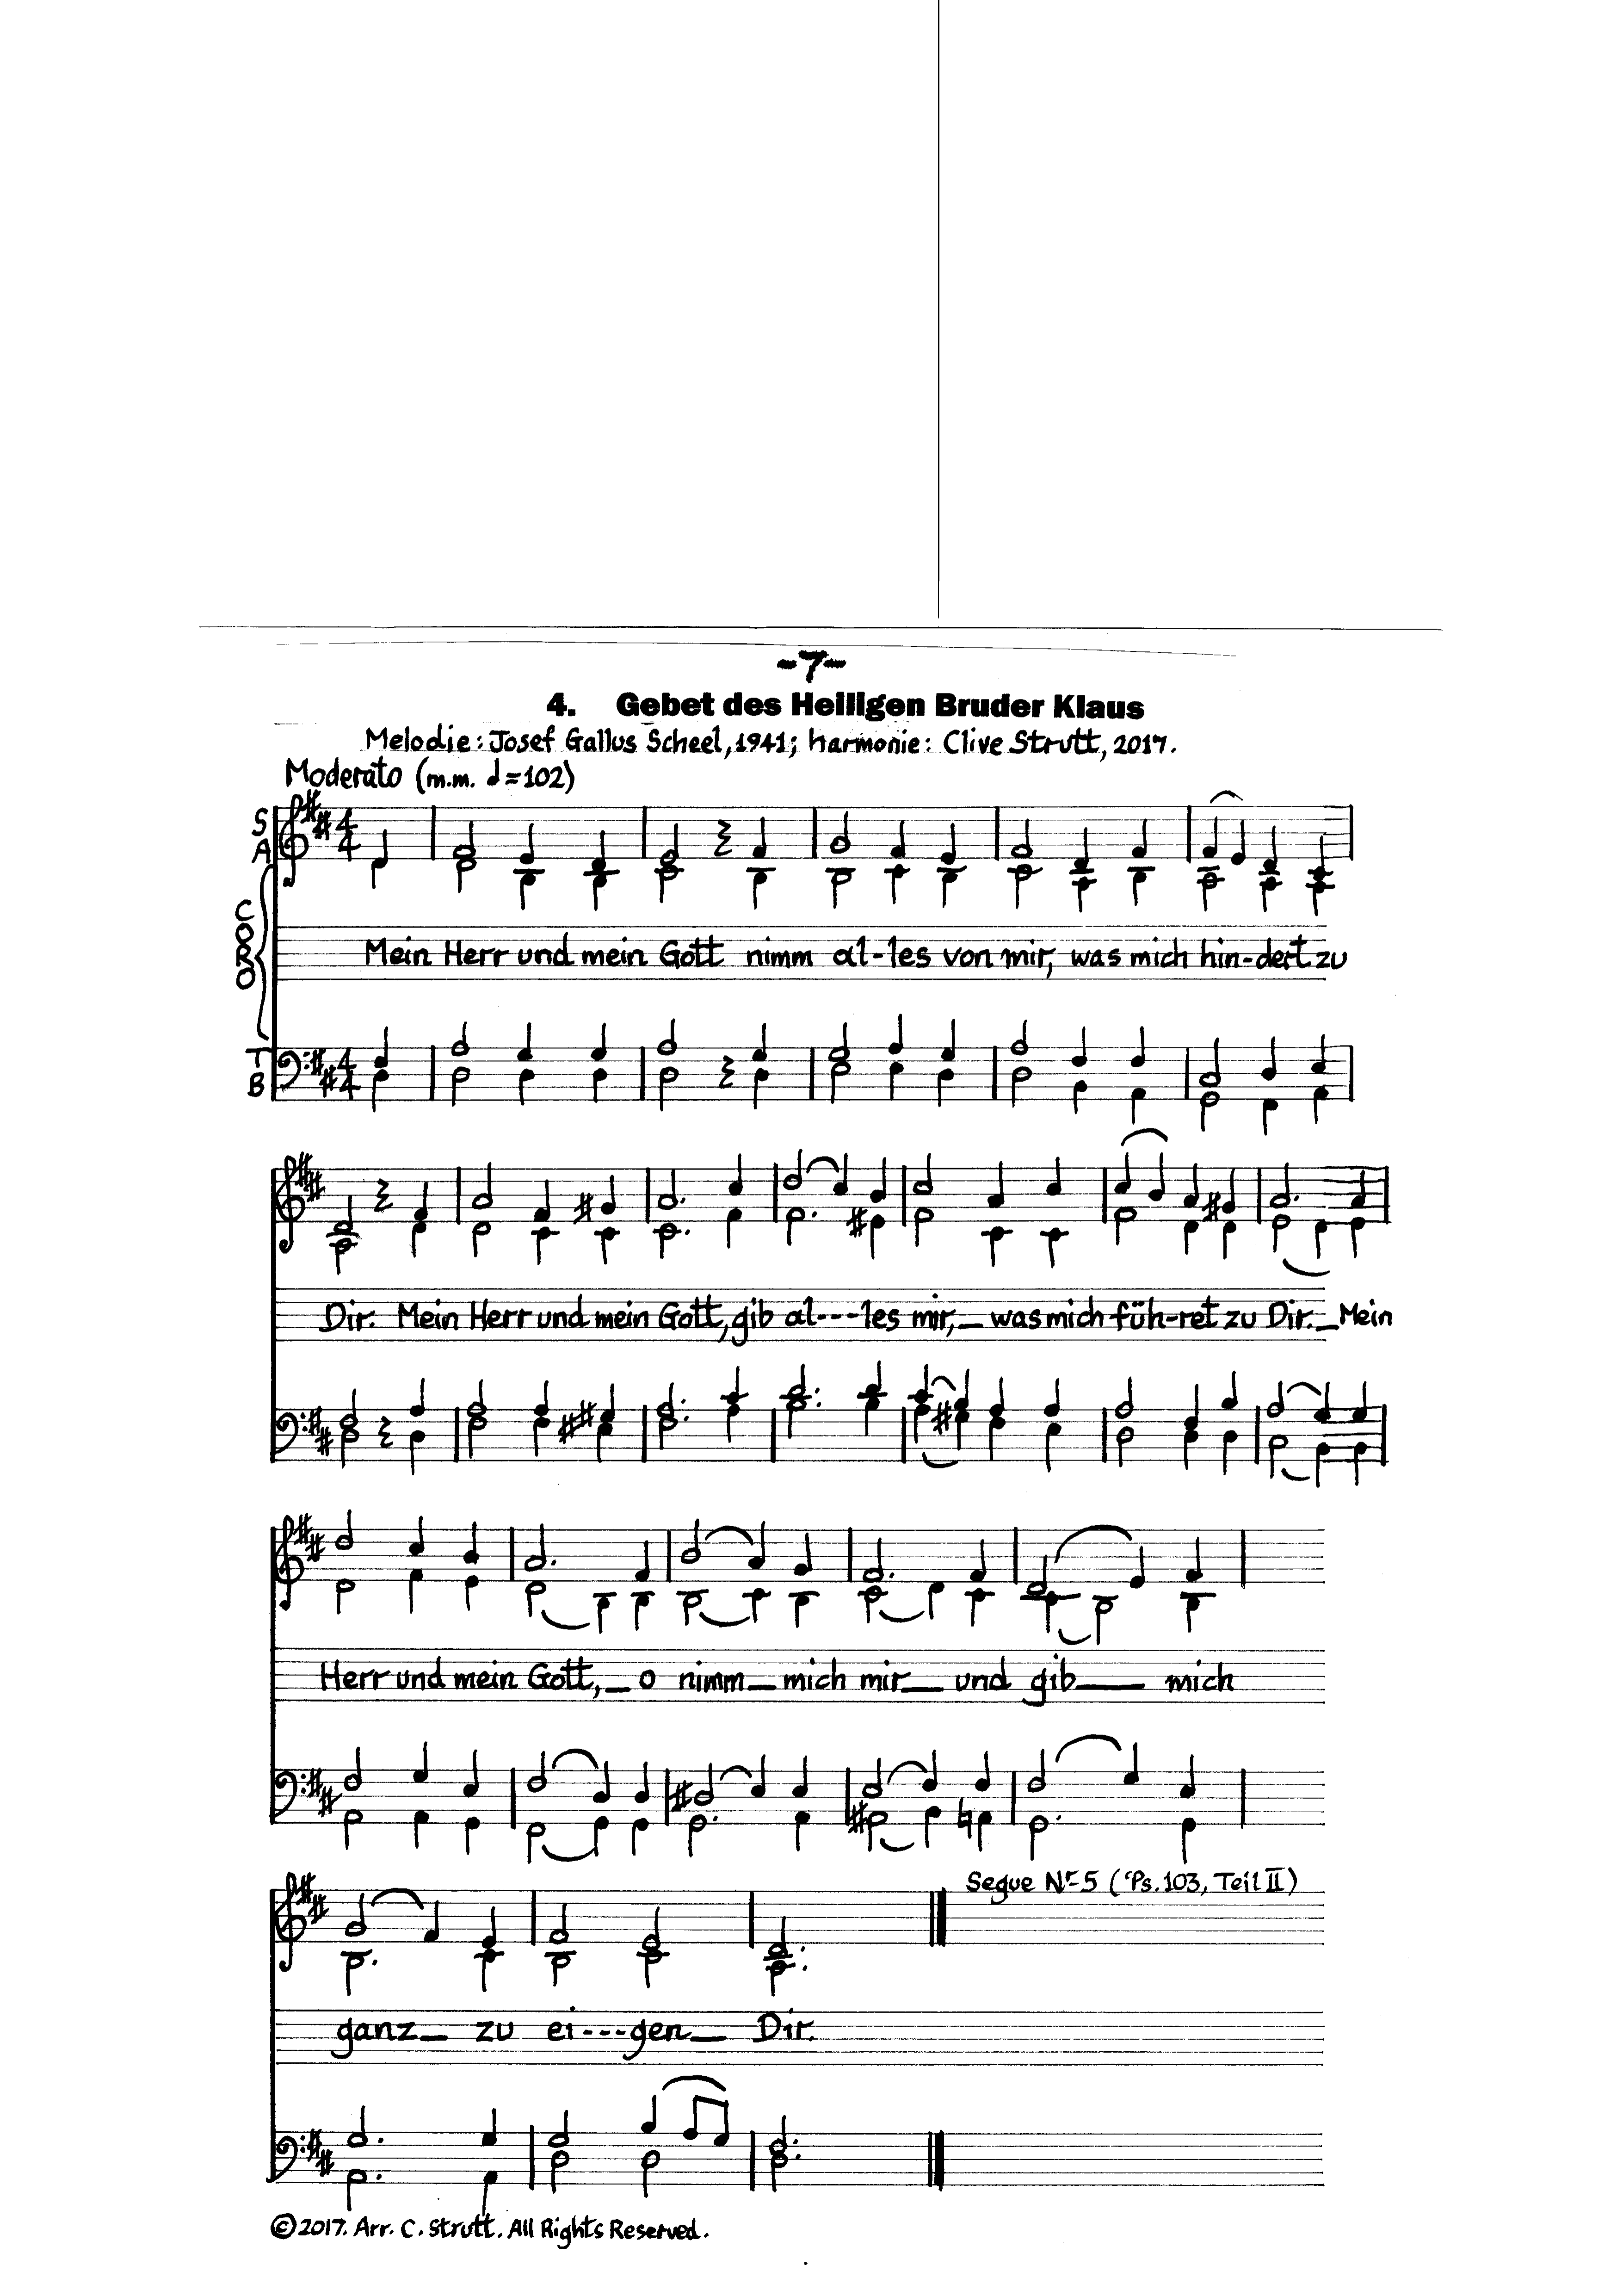 -7-
4. Gebet des Heiligen Bruder Klaus
Melodie: Josef Gallus Scheel, 1941; harmonie: Clive Strutt, 2017.
Moderato (m.m. 𝅗𝅥=102)
S
A
CORO
T
B
4
4
Mein Herr und mein Gott nimm al-les von mir, was mich hin-dert zu
4
4
Dir. Mein Herr und mein Gott, gib al---les mir,_ was mich füh-ret zu Dir._ Mein
Herr und mein Gott,_ o nimm_ mich mir_ und gib_ mich
Segue Nr 5 (Ps. 103, Teil II)
ganz_ zu ei---gen_ Dir.
©2017. Arr. C. Strutt. All Rights Reserved.